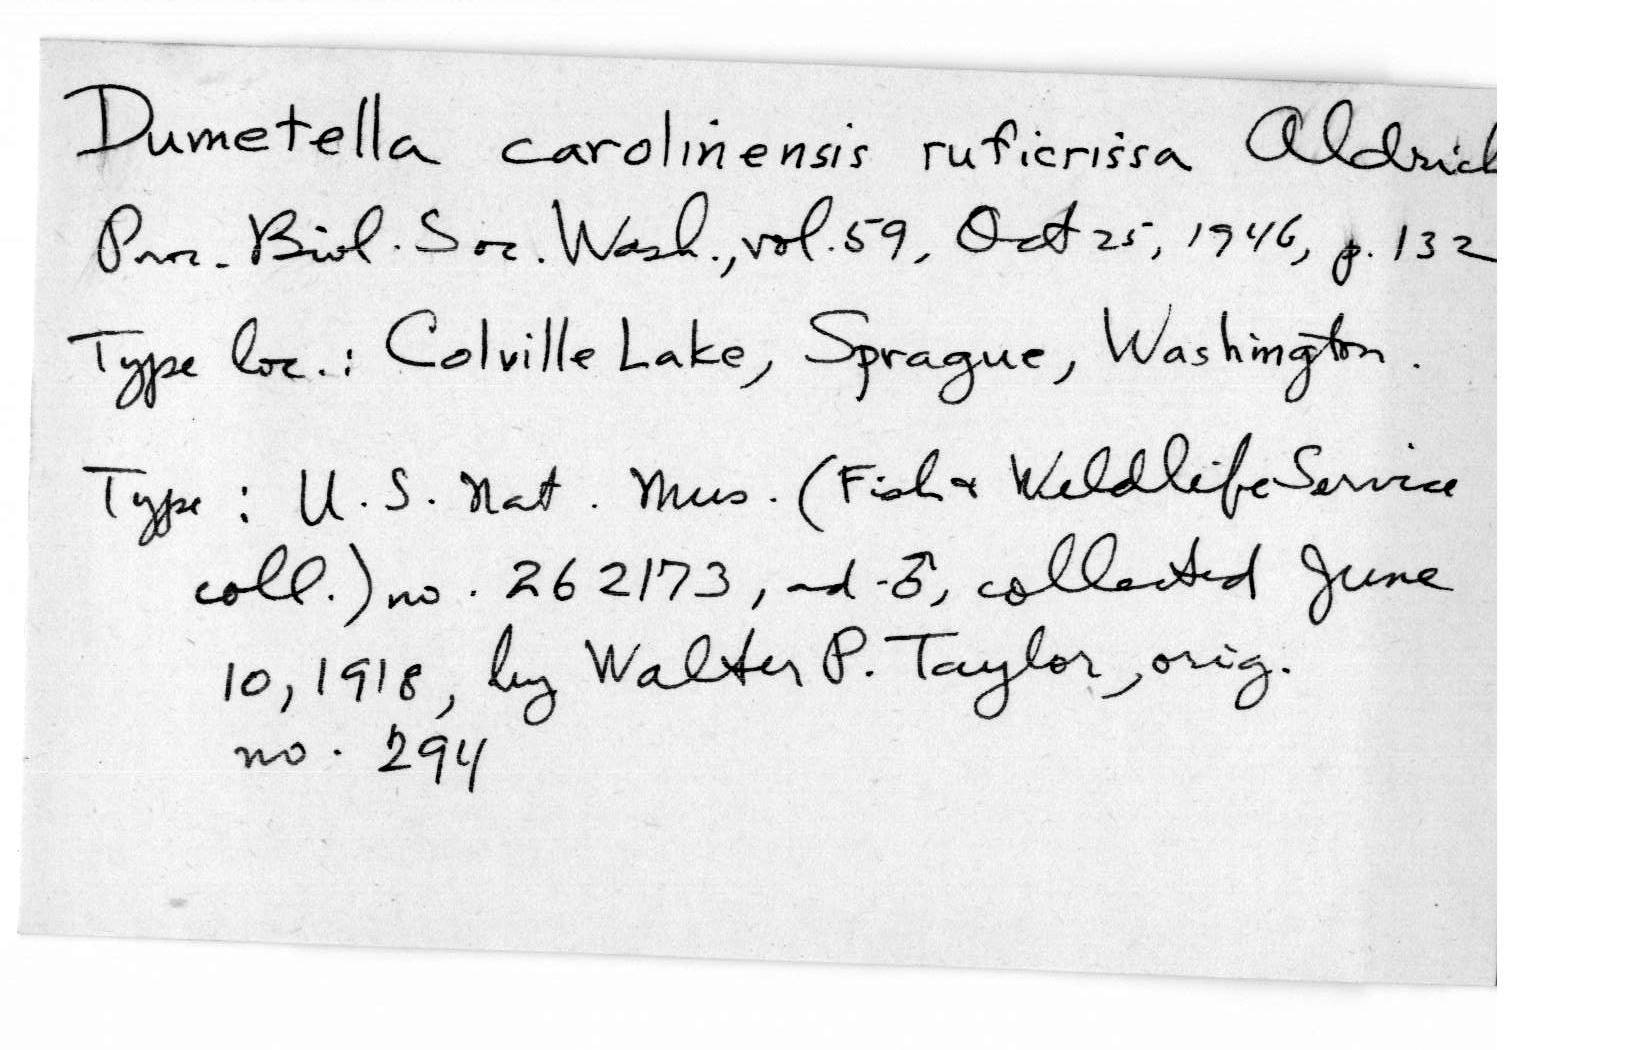 Dumetella carolinensis ruficrissa Aldrich
Proc. Biol. Soc. Wash., vol. 59, Oct 25, 1946, p. 132
Type loc.: Colville Lake, Sprague, Washington.
Type: U.S. Nat. Mus. (Fish & Wildlife Service
coll.) no. 262173, ad. ♂, collected June
10, 1918, by Walter P. Taylor, orig.
no. 294